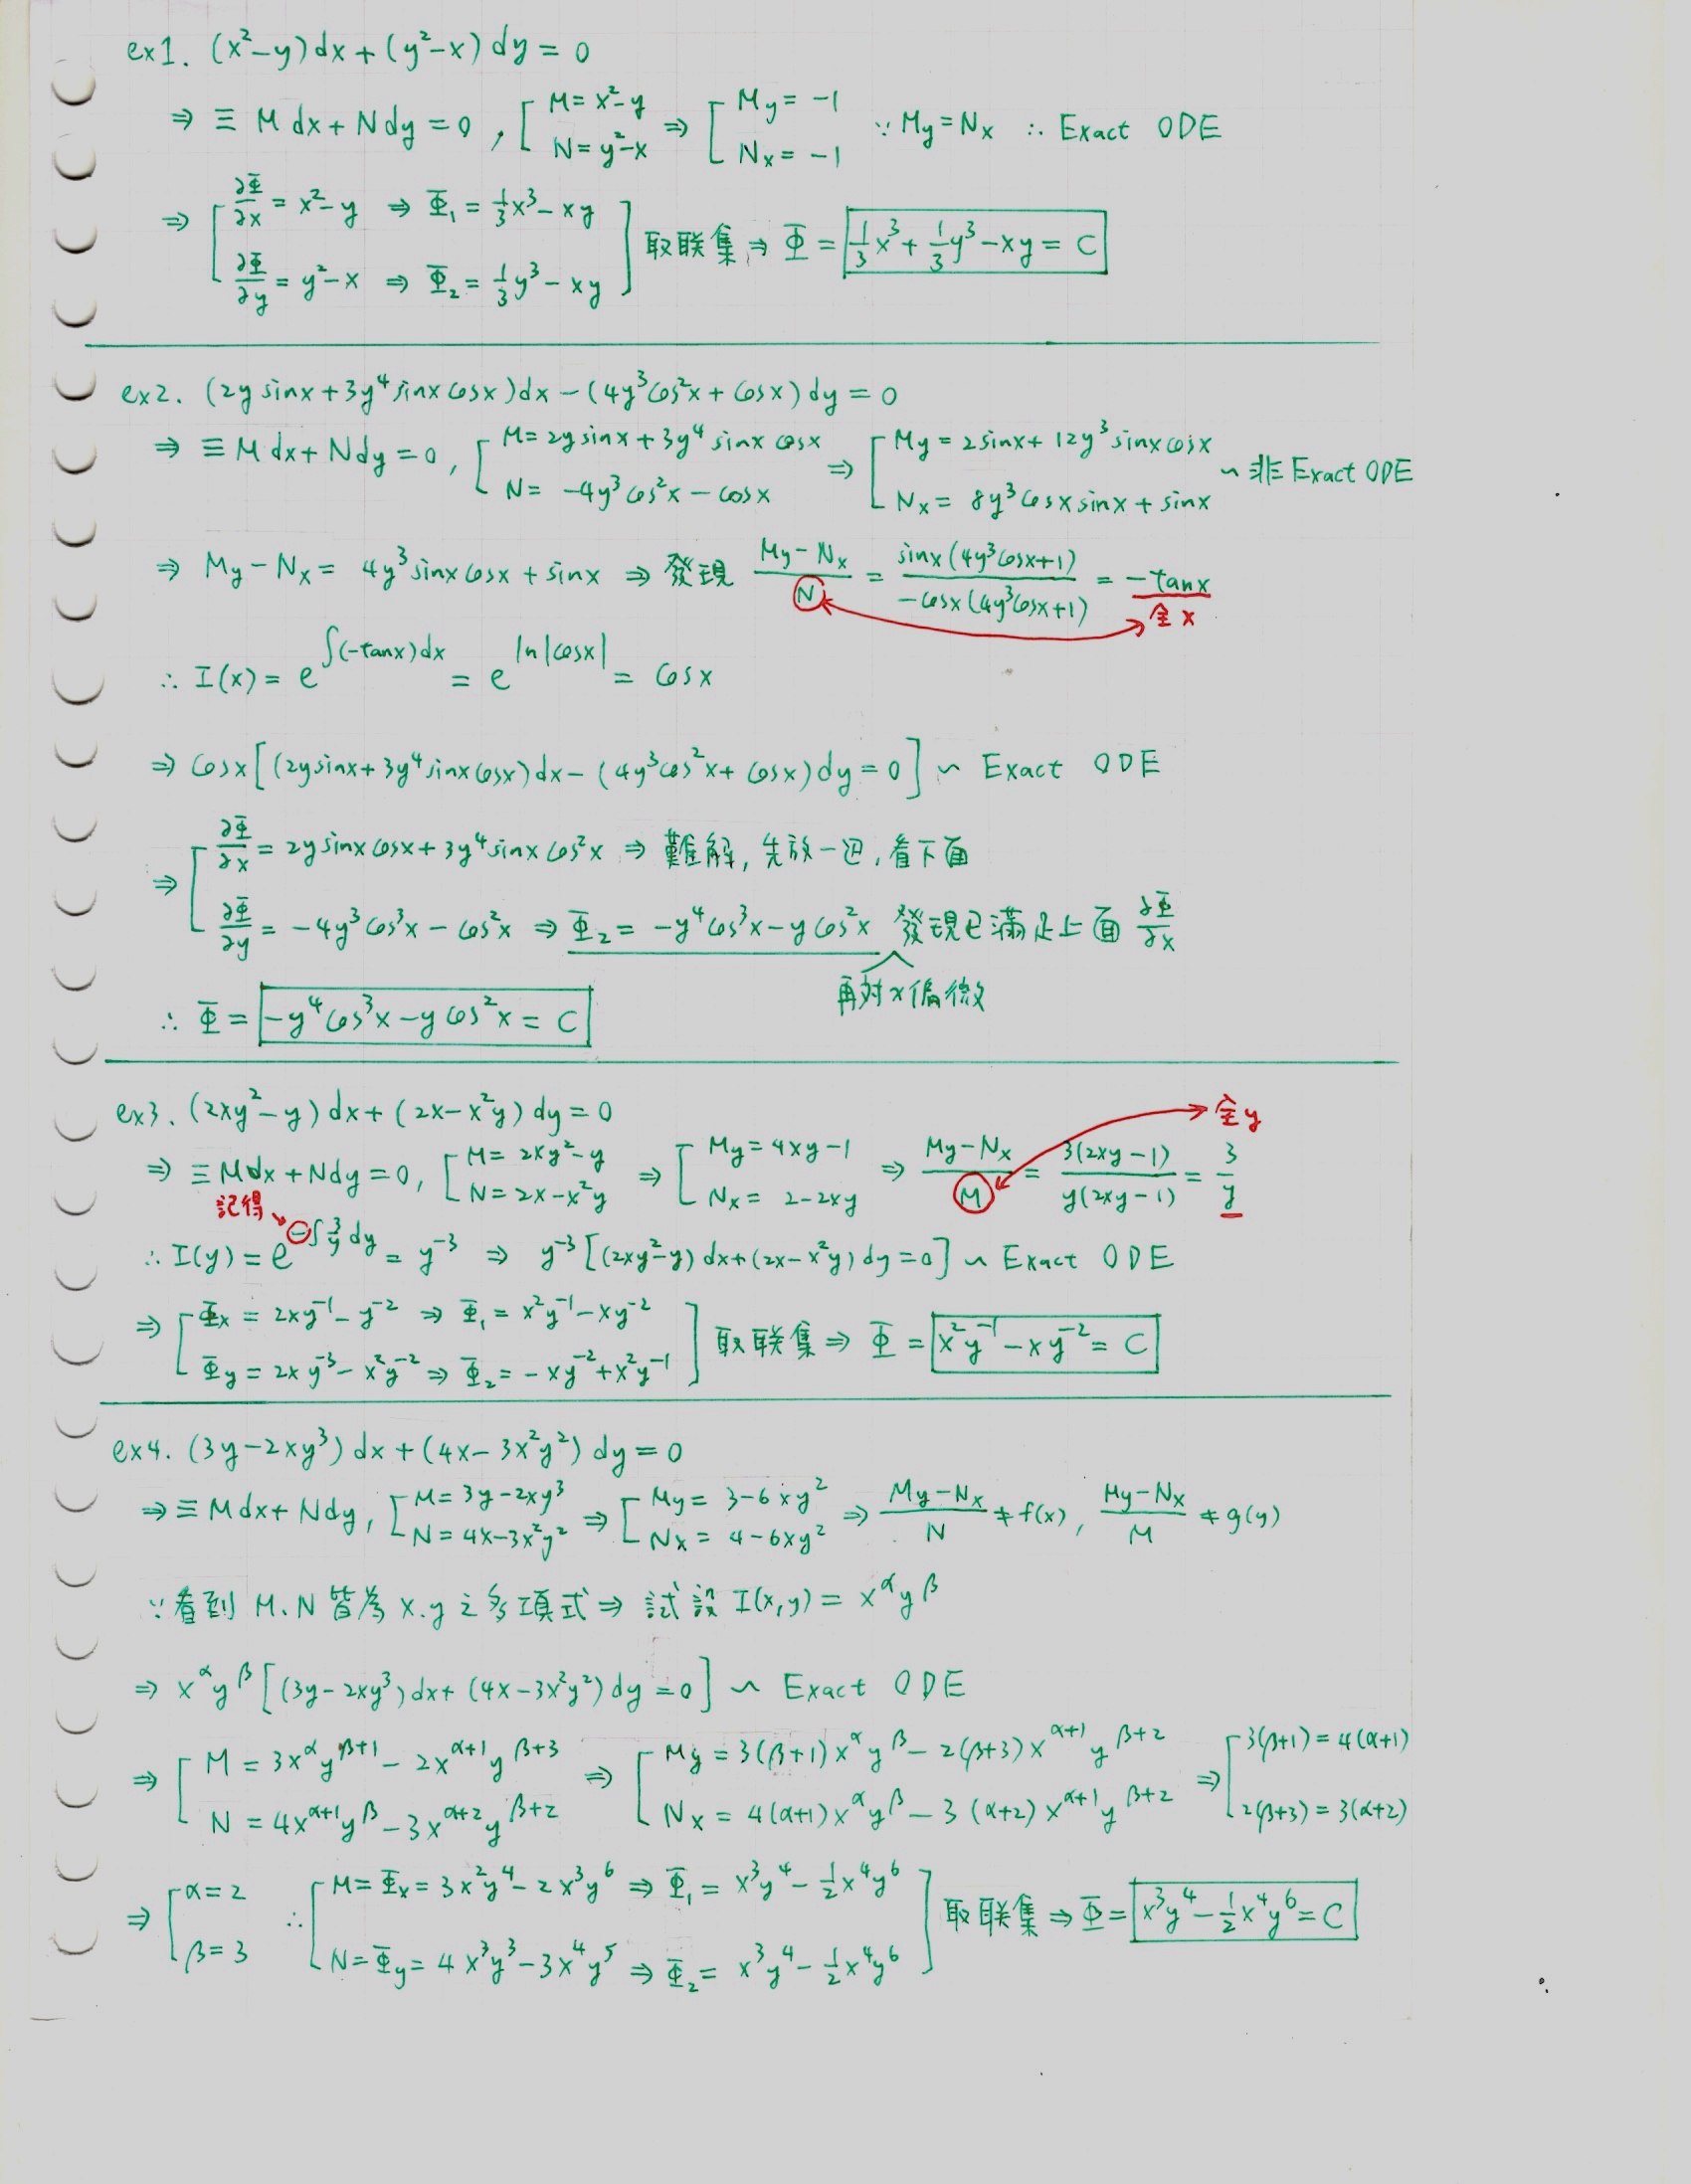 ex1. (x²−y)dx+(y²−x)dy=0
⇒ ≡ M dx+Ndy=0, [M=x²−y ⇒ [My=−1 ∵My=Nx ∴ Exact ODE
N=y²−x Nx=−1
⇒ [∂Φ/∂x = x²−y ⇒ Φ₁=⅓x³−xy
∂Φ/∂y = y²−x ⇒ Φ₂=⅓y³−xy] 取联集⇒ Φ = ⅓x³+⅓y³−xy=C
ex2. (2y sinx+3y⁴sinxcosx)dx−(4y³cos²x+cosx)dy=0
⇒ ≡ M dx+Ndy=0, [M=2ysinx+3y⁴sinx cosx ⇒ [My=2sinx+12y³sinxcosx ~非Exact ODE
N= −4y³cos²x−cosx Nx= 8y³cosxsinx+sinx
⇒ My−Nx= 4y³sinxcosx+sinx ⇒ 發現 (My−Nx)/N = sinx(4y³cosx+1)/−cosx(4y³cosx+1) = −tanx
全x
∴ I(x)= e^∫(−tanx)dx = e^ln|cosx| = cosx
⇒ cosx[(2ysinx+3y⁴sinxcosx)dx−(4y³cos²x+cosx)dy=0] ~ Exact ODE
⇒ [∂Φ/∂x = 2ysinxcosx+3y⁴sinxcos²x ⇒ 難解,先放一边,看下面
∂Φ/∂y = −4y³cos³x−cos²x ⇒ Φ₂= −y⁴cos³x−ycos²x 發現已滿足上面 ∂Φ/∂x
再対x偏微
∴ Φ= −y⁴cos³x−ycos²x=C
ex3. (2xy²−y)dx+(2x−x²y)dy=0
全y
⇒ ≡Mdx+Ndy=0, [M=2xy²−y ⇒ [My=4xy−1 ⇒ (My−Nx)/M = 3(2xy−1)/y(2xy−1) = 3/y
N=2x−x²y Nx= 2−2xy
記得
∴ I(y)=e^−∫3/y dy = y⁻³ ⇒ y⁻³[(2xy²−y)dx+(2x−x²y)dy=0] ~ Exact ODE
⇒ [Φx=2xy⁻¹−y⁻² ⇒ Φ₁=x²y⁻¹−xy⁻²
Φy=2xy⁻³−x²y⁻² ⇒ Φ₂=−xy⁻²+x²y⁻¹] 取联集⇒ Φ = x²y⁻¹−xy⁻²=C
ex4. (3y−2xy³)dx+(4x−3x²y²)dy=0
⇒ ≡ Mdx+Ndy, [M=3y−2xy³ ⇒ [My=3−6xy² ⇒ (My−Nx)/N ≠f(x), (My−Nx)/M ≠g(y)
N=4x−3x²y² Nx=4−6xy²
∵看到 M.N皆為 x.y之多項式⇒ 試設 I(x,y)= x^α y^β
⇒ x^α y^β[(3y−2xy³)dx+(4x−3x²y²)dy=0] ~ Exact ODE
⇒ [M=3x^α y^(β+1)−2x^(α+1) y^(β+3) ⇒ [My=3(β+1)x^α y^β−2(β+3)x^(α+1) y^(β+2) ⇒ [3(β+1)=4(α+1)
N=4x^(α+1) y^β−3x^(α+2) y^(β+2) Nx=4(α+1)x^α y^β−3(α+2)x^(α+1) y^(β+2) 2(β+3)=3(α+2)
⇒ [α=2 ∴ [M=Φx=3x²y⁴−2x³y⁶ ⇒ Φ₁=x³y⁴−½x⁴y⁶
β=3 N=Φy=4x³y³−3x⁴y⁵ ⇒ Φ₂=x³y⁴−½x⁴y⁶] 取联集⇒ Φ= x³y⁴−½x⁴y⁶=C